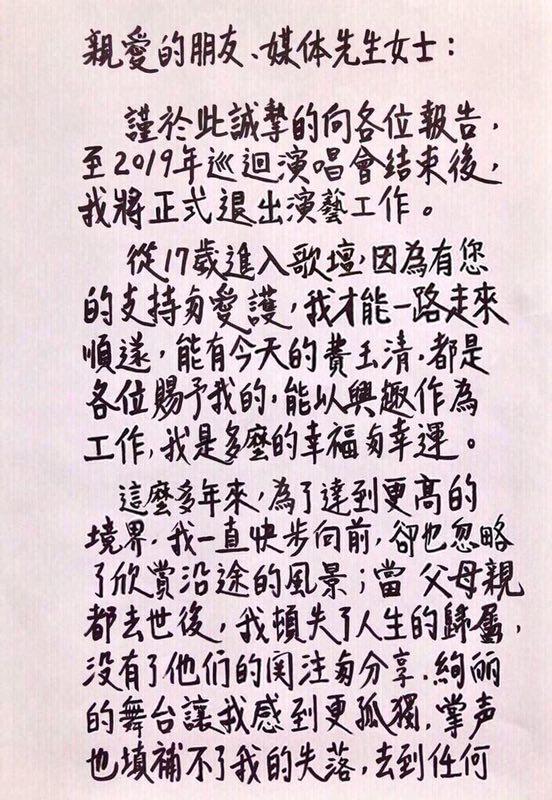 親愛的朋友、媒体先生女士：
謹於此誠摯的向各位報告，
至2019年巡迴演唱會结束後，
我將正式退出演藝工作。
從17歲進入歌壇，因為有您
的支持匆愛護，我才能一路走來
順遂，能有今天的費玉清，都是
各位賜予我的，能以興趣作為
工作，我是多麼的幸福匆幸運。
這麼多年來，為了達到更高的
境界，我一直快步向前，卻也忽略
了欣賞沿途的風景；當父母親
都去世後，我頓失了人生的歸屬，
没有了他们的関注匆分享，絢丽
的舞台讓我感到更孤獨，掌声
也填補不了我的失落，去到任何